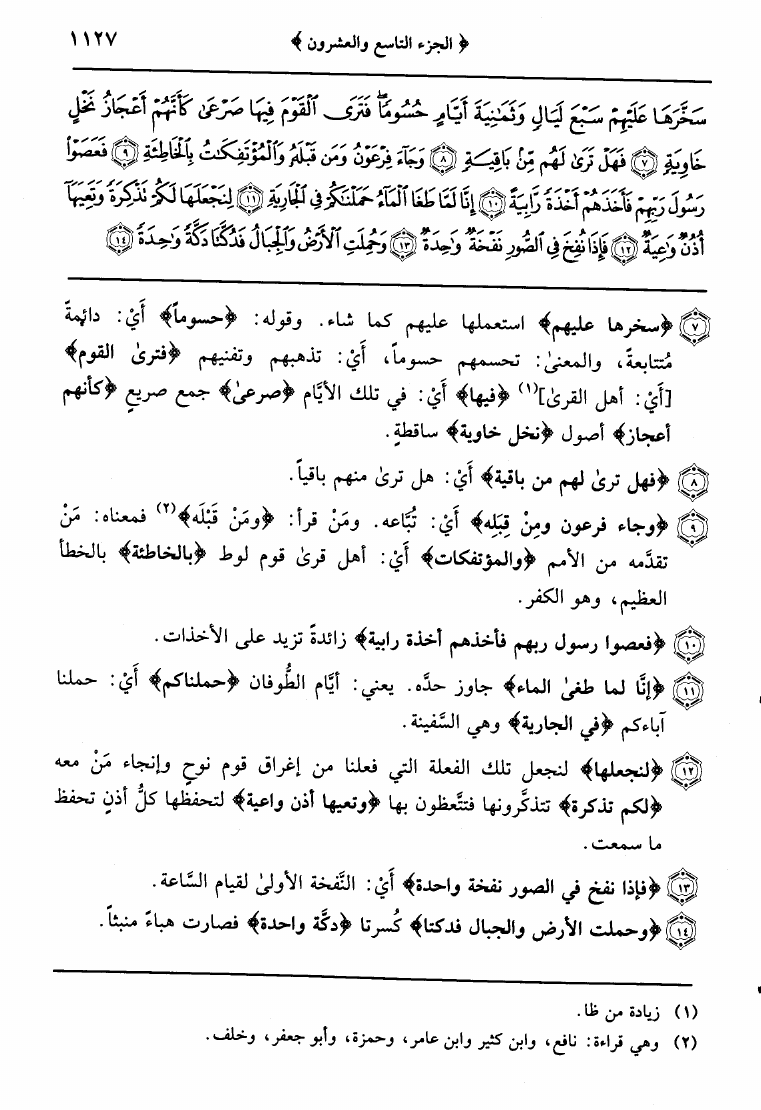 ﴿ الجزء التاسع والعشرون ﴾ ١١٢٧
سَخَّرَهَا عَلَيْهِمْ سَبْعَ لَيَالٍ وَثَمَٰنِيَةَ أَيَّامٍ حُسُومًاۖ فَتَرَى ٱلْقَوْمَ فِيهَا صَرْعَىٰ كَأَنَّهُمْ أَعْجَازُ نَخْلٍ
خَاوِيَةٍ ﴿٧﴾ فَهَلْ تَرَىٰ لَهُم مِّنۢ بَاقِيَةٍ ﴿٨﴾ وَجَآءَ فِرْعَوْنُ وَمَن قَبْلَهُۥ وَٱلْمُؤْتَفِكَٰتُ بِٱلْخَاطِئَةِ ﴿٩﴾ فَعَصَوْا۟
رَسُولَ رَبِّهِمْ فَأَخَذَهُمْ أَخْذَةً رَّابِيَةً ﴿١٠﴾ إِنَّا لَمَّا طَغَا ٱلْمَآءُ حَمَلْنَٰكُمْ فِى ٱلْجَارِيَةِ ﴿١١﴾ لِنَجْعَلَهَا لَكُمْ تَذْكِرَةً وَتَعِيَهَآ
أُذُنٌ وَٰعِيَةٌ ﴿١٢﴾ فَإِذَا نُفِخَ فِى ٱلصُّورِ نَفْخَةٌ وَٰحِدَةٌ ﴿١٣﴾ وَحُمِلَتِ ٱلْأَرْضُ وَٱلْجِبَالُ فَدُكَّتَا دَكَّةً وَٰحِدَةً ﴿١٤﴾
﴿٧﴾ ﴿سخرها عليهم﴾ استعملها عليهم كما شاء. وقوله: ﴿حسوماً﴾ أَيْ: دائِمةً
مُتتابعةً، والمعنىٰ: تحسمهم حسوماً، أَيْ: تذهبهم وتفنيهم ﴿فترىٰ القوم﴾
[أَيْ: أهل القرىٰ](١) ﴿فيها﴾ أَيْ: في تلك الأيَّام ﴿صرعىٰ﴾ جمع صريعٍ ﴿كأنهم
أعجاز﴾ أصول ﴿نخل خاوية﴾ ساقطةٍ.
﴿٨﴾ ﴿فهل ترىٰ لهم من باقية﴾ أَيْ: هل ترىٰ منهم باقياً.
﴿٩﴾ ﴿وجاء فرعون ومِنْ قِبَلِه﴾ أَيْ: تُبَّاعه. ومَنْ قرأ: ﴿ومَنْ قَبْلَه﴾(٢) فمعناه: مَنْ
تقدَّمه من الأمم ﴿والمؤتفكات﴾ أَيْ: أهل قرىٰ قوم لوط ﴿بالخاطئة﴾ بالخطأ
العظيم، وهو الكفر.
﴿١٠﴾ ﴿فعصوا رسول ربهم فأخذهم أخذة رابية﴾ زائدةً تزيد على الأخذات.
﴿١١﴾ ﴿إنَّا لما طغىٰ الماء﴾ جاوز حدَّه. يعني: أيَّام الطُّوفان ﴿حملناكم﴾ أَيْ: حملنا
آباءكم ﴿في الجارية﴾ وهي السَّفينة.
﴿١٢﴾ ﴿لنجعلها﴾ لنجعل تلك الفعلة التي فعلنا من إغراق قوم نوحٍ وإنجاء مَنْ معه
﴿لكم تذكرة﴾ تتذكَّرونها فتتَّعظون بها ﴿وتعيها أذن واعية﴾ لتحفظها كلُّ أذنٍ تحفظ
ما سمعت.
﴿١٣﴾ ﴿فإذا نفخ في الصور نفخة واحدة﴾ أَيْ: النَّفخة الأولىٰ لقيام السَّاعة.
﴿١٤﴾ ﴿وحملت الأرض والجبال فدكتا﴾ كُسرتا ﴿دكَّة واحدة﴾ فصارت هباءً منبثاً.
(١) زيادة من ظا.
(٢) وهي قراءة: نافع، وابن كثير وابن عامر، وحمزة، وأبو جعفر، وخلف.